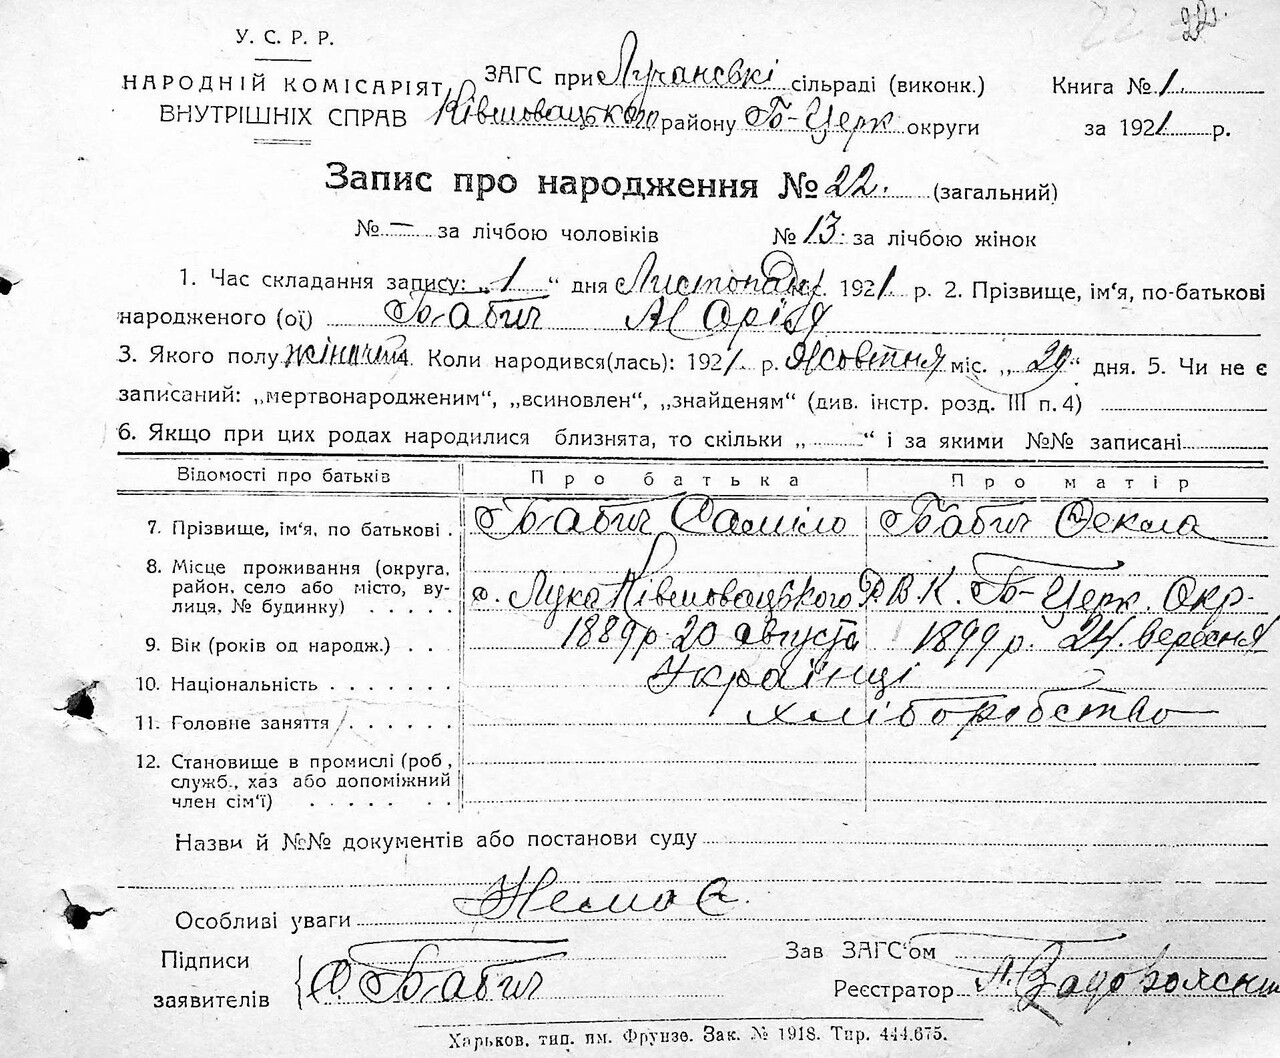 22.
У. С. Р. Р.
НАРОДНІЙ КОМІСАРІЯТ
ВНУТРІШНІХ СПРАВ
ЗАГС при Лучанські сільраді (виконк.)
Ківшовацького району Б-Церк округи
Книга № 1.
за 1921 р.
Запис про народження № 22. (загальний)
№ — за лічбою чоловіків № 13. за лічбою жінок
1. Час складання запису: „1“ дня Листопаду 1921 р. 2. Прізвище, ім'я, по-батькові
народженого (ої) Бабич
3. Якого полу жіночий 4. Коли народився(лась): 1921. р. Жовтня міс. „29“ дня. 5. Чи не є
записаний: „мертвонародженим“, „всиновлен“, „знайденям“ (див. інстр. розд. III п. 4)
6. Якщо при цих родах народилися близнята, то скільки „ “ і за якими №№ записані
Відомості про батьків Про батька Про матір
7. Прізвище, ім'я, по батькові . Бабич Саміло Бабич Фекла
8. Місце проживання (округа,
район, село або місто, ву-
лиця, № будинку) . . . . с. Лука Ківшовацького Р.В.К. Б-Церк. Окр.
9. Вік (років од народж.) . . . 1889 р. 20 августа 1899 р. 24. вересня
10. Національність . . . . . . . Українці
11. Головне заняття . . . . . . хліборобство
12. Становище в промислі (роб.,
служб., хаз або допоміжний
член сім'ї) . . . . . . .
Назви й №№ документів або постанови суду
Особливі уваги Немає.
Підписи
заявителів Бабич
Зав ЗАГС'ом
Реєстратор
Харьков, тип. им. Фрунзе. Зак. № 1918. Тир. 444.675.